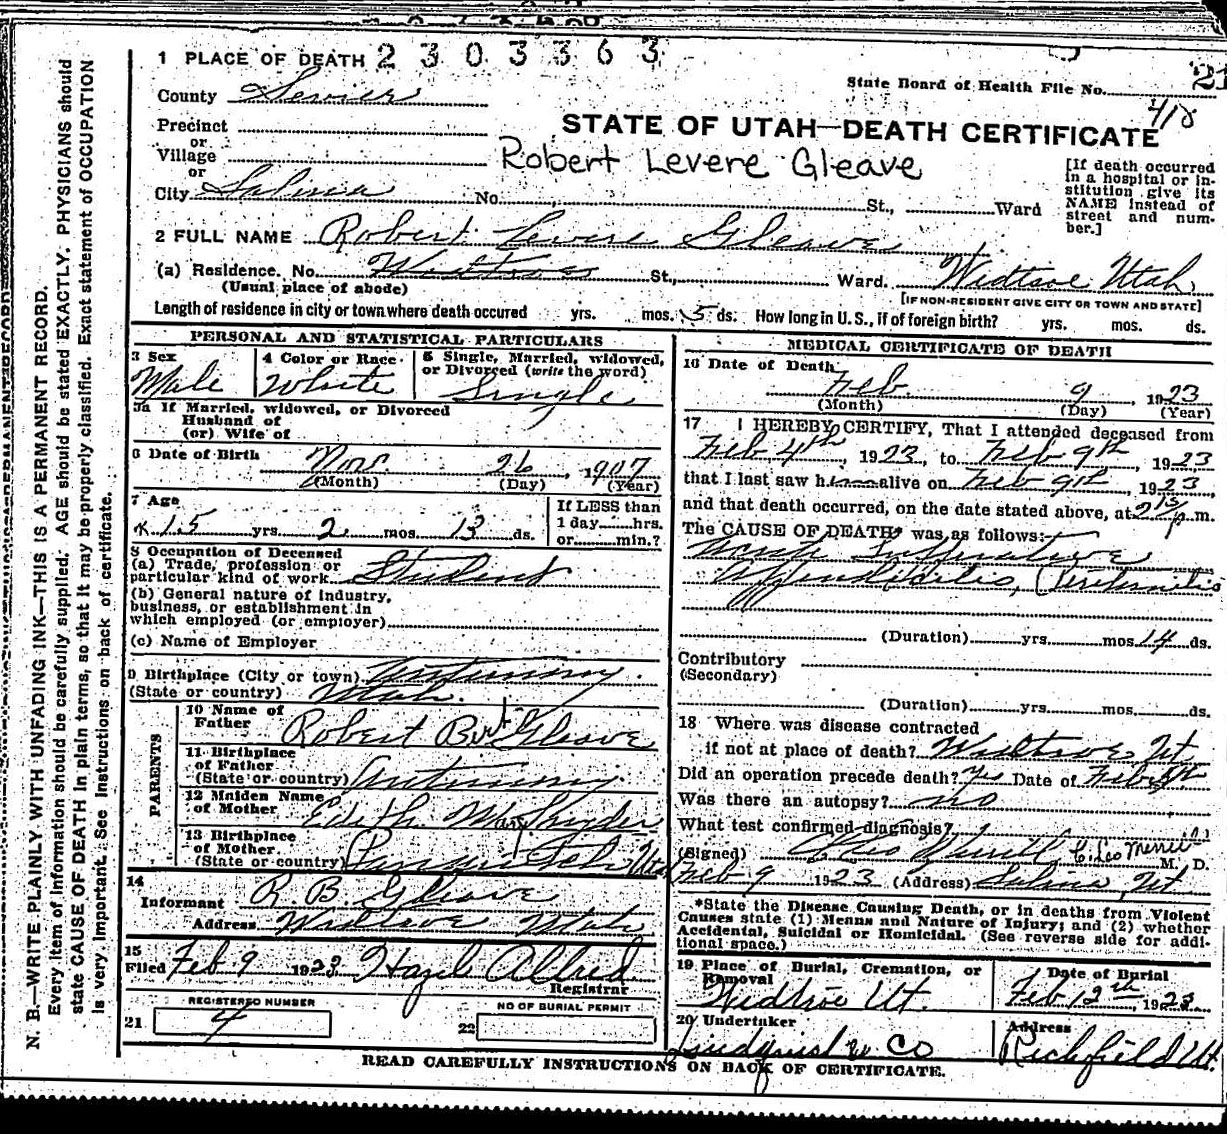 1 PLACE OF DEATH 2303363
State Board of Health File No. 21
410
County Sevier
STATE OF UTAH—DEATH CERTIFICATE
Precinct
or
Village
Robert Levere Gleave
or
City Salina No. St., Ward
[If death occurred
in a hospital or in-
stitution give its
NAME instead of
street and num-
ber.]
2 FULL NAME Robert Levere Gleave
(a) Residence. No. Widtsoe St., Ward. Widtsoe Utah
(Usual place of abode) [IF NON-RESIDENT GIVE CITY OR TOWN AND STATE]
Length of residence in city or town where death occured yrs. mos. 5 ds. How long in U.S., if of foreign birth? yrs. mos. ds.
PERSONAL AND STATISTICAL PARTICULARS
3 Sex
Male
4 Color or Race
White
5 Single, Married, widowed,
or Divorced (write the word)
Single
3a If Married, widowed, or Divorced
Husband of
(or) Wife of
6 Date of Birth Nov. 26, 1907
(Month) (Day) (Year)
7 Age
15 yrs. 2 mos. 13 ds.
If LESS than
1 day hrs.
or min.?
8 Occupation of Deceased
(a) Trade, profession or
particular kind of work Student
(b) General nature of industry,
business, or establishment in
which employed (or employer)
(c) Name of Employer
9 Birthplace (City or town) Antimony
(State or country) Utah
PARENTS
10 Name of
Father Robert Burt Gleave
11 Birthplace
of Father
(State or country) Antimony
12 Maiden Name
of Mother Edith May Snyder
13 Birthplace
of Mother
(State or country) Utah
14
Informant R B Gleave
Address Widtsoe Utah
15
Filed Feb 9 1923 Hazel Allred
Registrar
REGISTERED NUMBER
21 4
NO OF BURIAL PERMIT
22
MEDICAL CERTIFICATE OF DEATH
16 Date of Death
Feb. 9, 1923
(Month) (Day) (Year)
17 I HEREBY CERTIFY, That I attended deceased from
Feb 4th, 1923, to Feb 9th, 1923
that I last saw him alive on Feb 9th, 1923,
and that death occurred, on the date stated above, at 2 15 p.m.
The CAUSE OF DEATH* was as follows:
Acute Suppurative
Appendicitis, Peritonitis
(Duration) yrs. mos. 14 ds.
Contributory
(Secondary)
(Duration) yrs. mos. ds.
18 Where was disease contracted
if not at place of death? Widtsoe Ut
Did an operation precede death? Yes Date of Feb 5th
Was there an autopsy? no
What test confirmed diagnosis?
(Signed) C. Leo Merrill M. D.
Feb 9 1923 (Address) Salina Ut
*State the Disease Causing Death, or in deaths from Violent
Causes state (1) Means and Nature of Injury; and (2) whether
Accidental, Suicidal or Homicidal. (See reverse side for addi-
tional space.)
19 Place of Burial, Cremation, or
Removal
Widtsoe Ut.
Date of Burial
Feb 12th, 1923
20 Undertaker
Lundquist Co
Address
Richfield Ut.
READ CAREFULLY INSTRUCTIONS ON BACK OF CERTIFICATE.
N. B.—WRITE PLAINLY WITH UNFADING INK—THIS IS A PERMANENT RECORD.
Every item of information should be carefully supplied. AGE should be stated EXACTLY. PHYSICIANS should
state CAUSE OF DEATH in plain terms, so that it may be properly classified. Exact statement of OCCUPATION
is very important. See instructions on back of certificate.